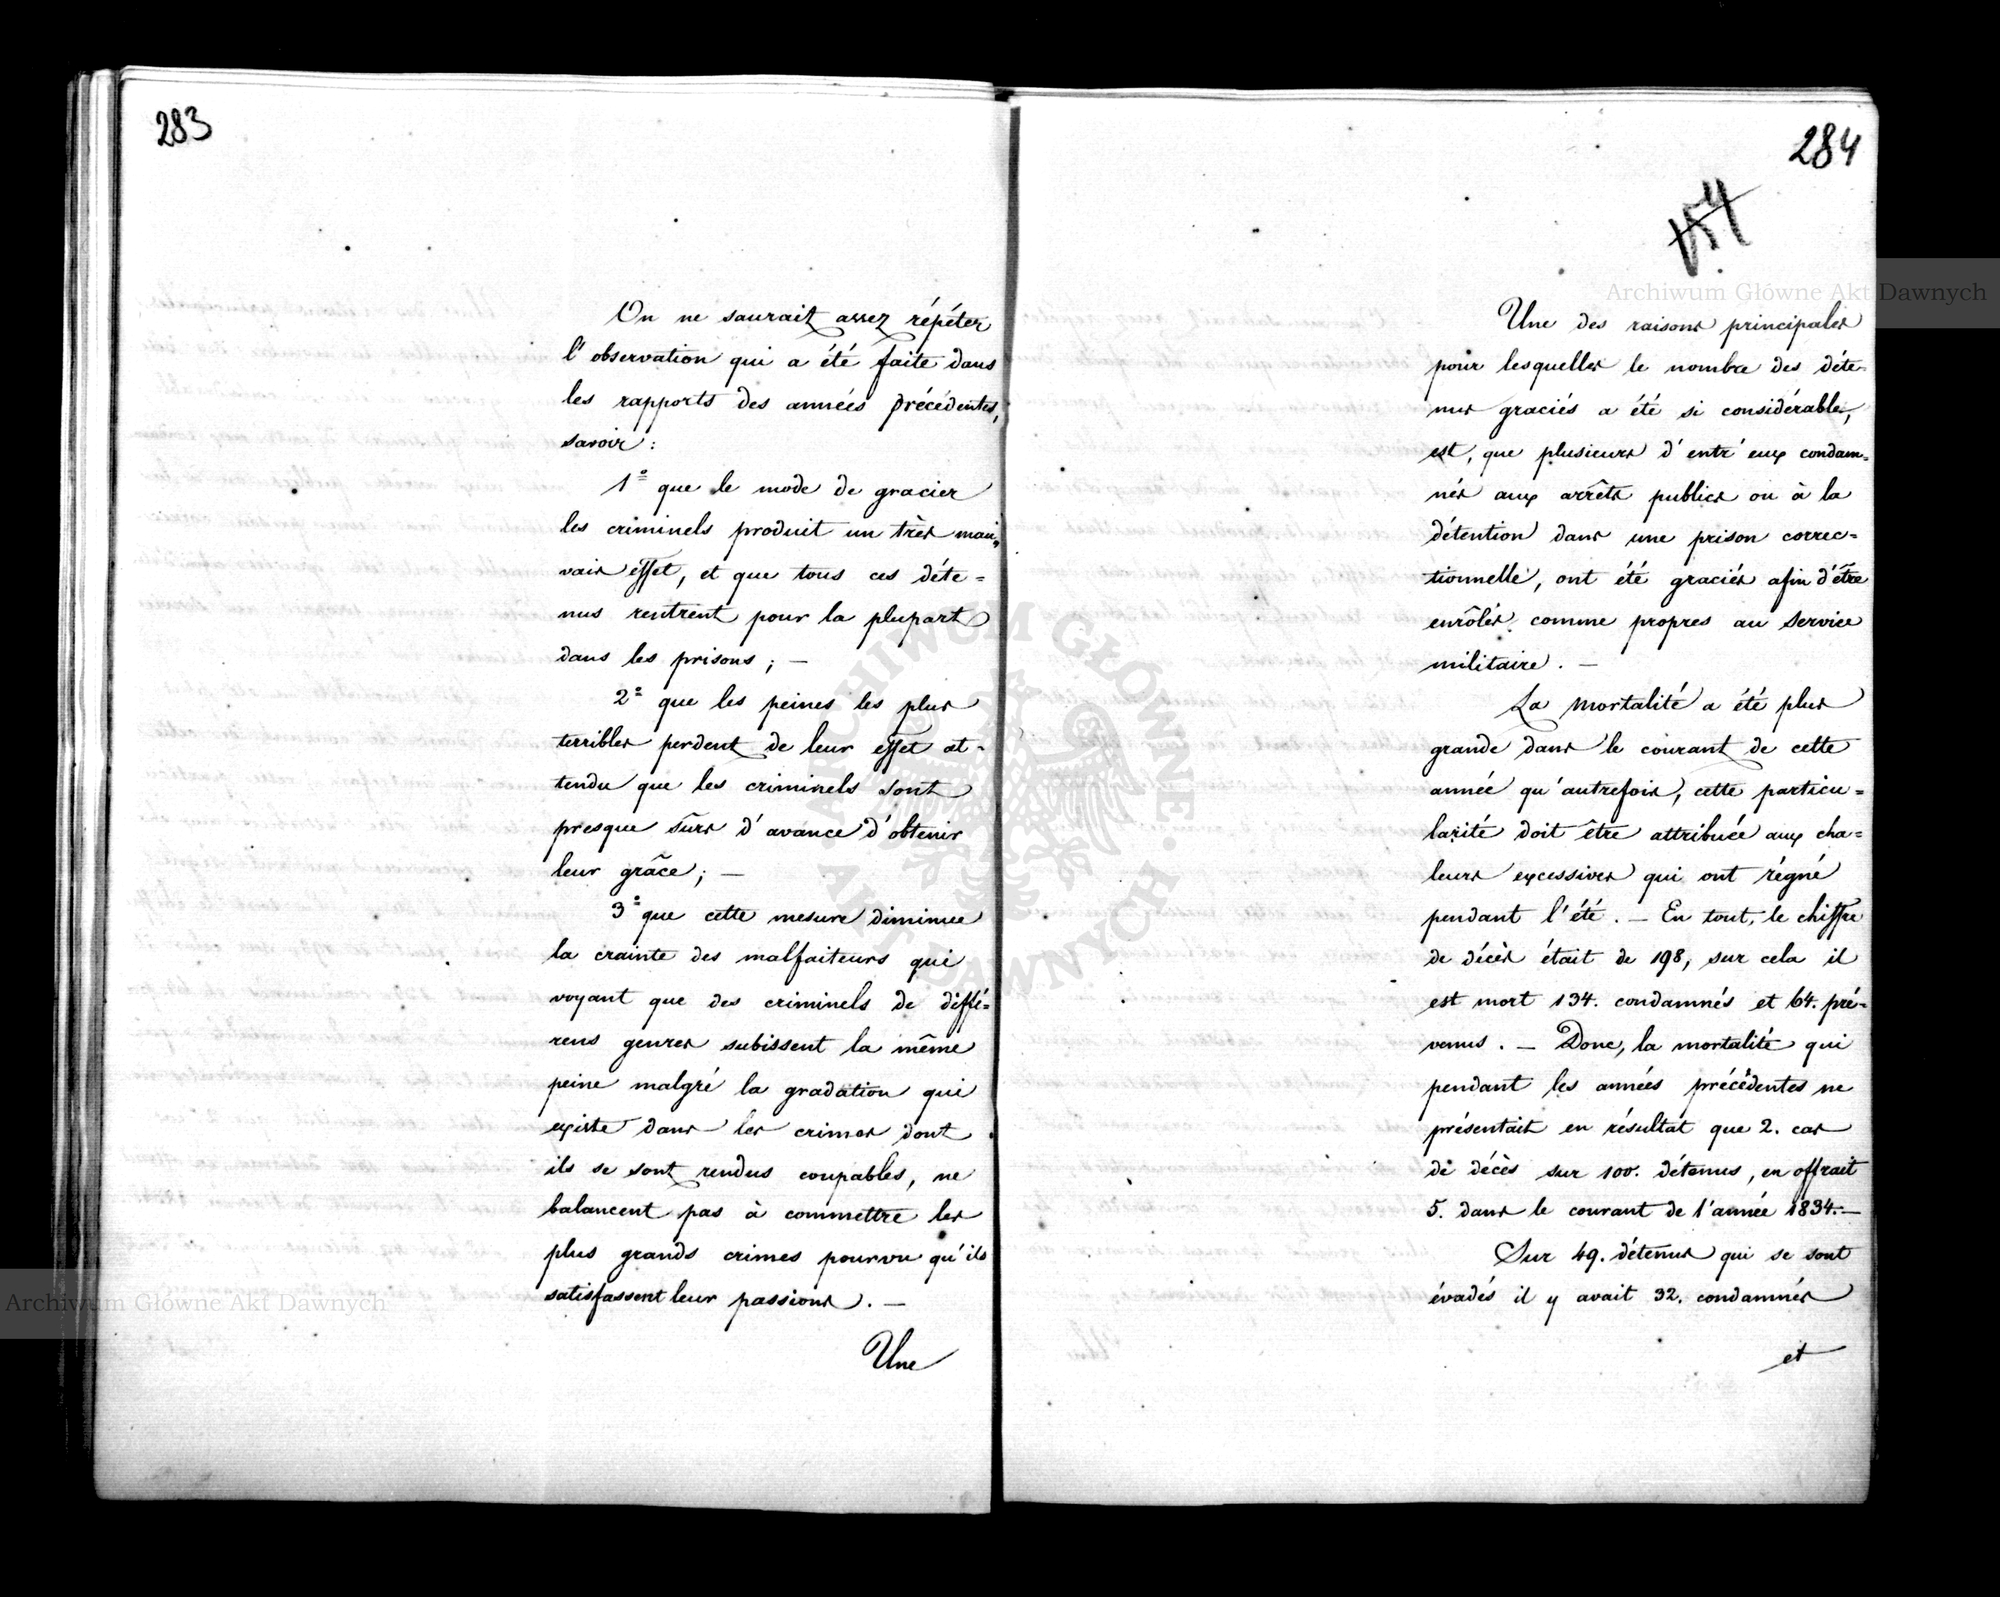 283
On ne saurait assez répéter
l'observation qui a été faite dans
les rapports des années précédentes,
savoir:
1º que le mode de gracier
les criminels produit un très mau-
vais éffet, et que tous ces déte=
nus rentrent pour la plupart
dans les prisons; —
2º que les peines les plus
terribles perdent de leur effet at-
tendu que les criminels sont
presque sûrs d'avance d'obtenir
leur grâce; —
3º que cette mesure diminue
la crainte des malfaiteurs qui
voyant que des criminels de diffé-
rens genres subissent la même
peine malgré la gradation qui
existe dans les crimes dont
ils se sont rendus coupables, ne
balancent pas à commettre les
plus grands crimes pourvu qu'ils
satisfassent leur passions. —
Une
284
154
Une des raisons principales
pour lesquelles le nombre des déte-
nus graciés a été si considérable,
est, que plusieurs d'entr'eux condam=
nés aux arrêts publics ou à la
détention dans une prison correc=
tionnelle, ont été graciés afin d'être
enrôlés comme propres au service
militaire. —
La mortalité a été plus
grande dans le courant de cette
année qu'autrefois, cette particu=
larité doit être attribuée aux cha=
leurs excessives qui ont régné
pendant l'été. — En tout, le chiffre
de décès était de 198, sur cela il
est mort 134. condamnés et 64. pré=
venus. — Donc, la mortalité qui
pendant les années précédentes ne
présentait en résultat que 2. cas
de décès sur 100. détenus, en offrait
5. dans le courant de l'année 1834. —
Sur 49. détenus qui se sont
évadés il y avait 32. condamnés
et
Archiwum Główne Akt Dawnych
Archiwum Główne Akt Dawnych
ARCHIWUM GŁÓWNE · AKT DAWNYCH ·